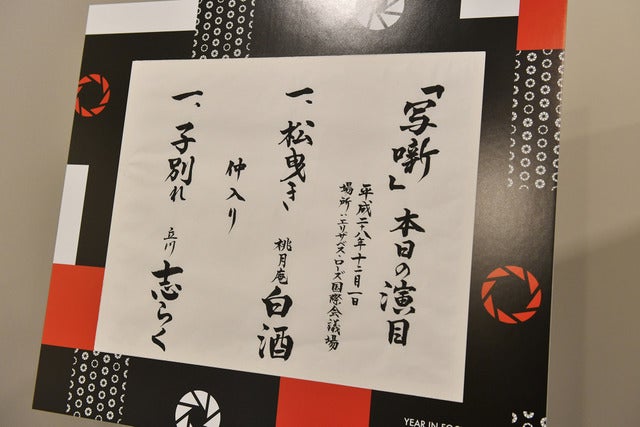 「写噺」本日の演目
平成二八年十二月一日
場所:エリザベス・ローズ国際会議場
一、松曳き 桃月庵白酒
仲入り
一、子別れ 立川志らく
YEAR IN